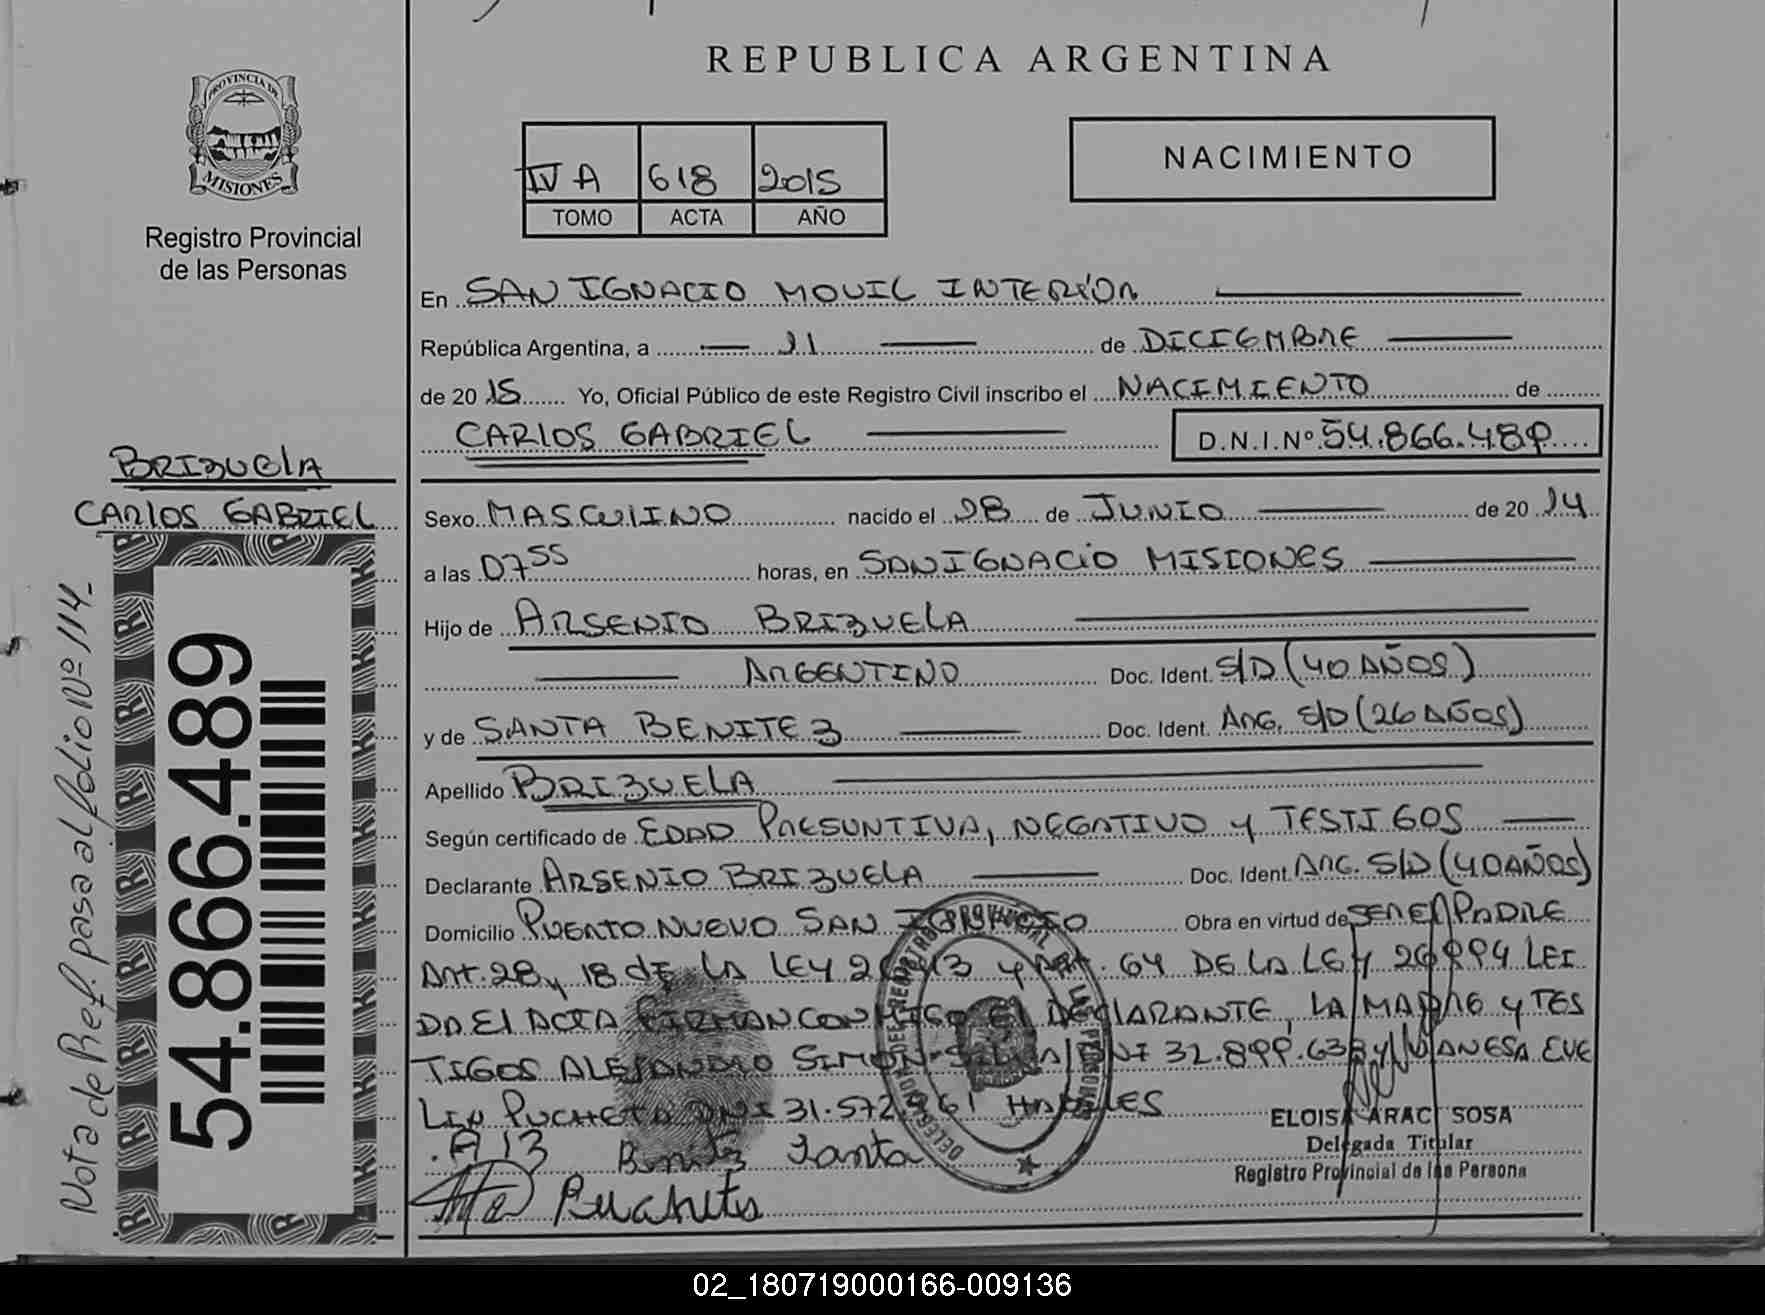 REPUBLICA ARGENTINA
PROVINCIA DE
MISIONES
Registro Provincial
de las Personas
IV A 618 2015
TOMO ACTA AÑO
NACIMIENTO
En SAN IGNACIO MOVIL INTERIOR
República Argentina, a 11 de DICIEMBRE
de 2015 Yo, Oficial Público de este Registro Civil inscribo el NACIMIENTO de
CARLOS GABRIEL D.N.I.Nº 54.866.489
BRIZUELA
CARLOS GABRIEL
Nota de Ref. pasa al folio Nº 114
54.866.489
Sexo MASCULINO nacido el 28 de JUNIO de 2014
a las 0755 horas, en SAN IGNACIO MISIONES
Hijo de ARSENIO BRIZUELA
ARGENTINO Doc. Ident. S/D (40 AÑOS)
y de SANTA BENITEZ Doc. Ident. ARG. S/D (26 AÑOS)
Apellido BRIZUELA
Según certificado de EDAD PRESUNTIVA, NEGATIVO y TESTIGOS
Declarante ARSENIO BRIZUELA Doc. Ident. ARG. S/D (40 AÑOS)
Domicilio PUERTO NUEVO SAN IGNACIO Obra en virtud de SER EL PADRE
ART. 28 y 18 de LA LEY 26413 y ART. 64 DE LA LEY 26994 LEI
DA EL ACTA FIRMAN CONMIGO EL DECLARANTE, LA MADRE y TES
TIGOS ALEJANDRO SIMON DNI 32.899.638 y VANESA EVE
LIN PUCHETA DNI 31.572.961 HABILES
Benitez Santa
Pucheta
DELEGADO DE REGISTRO PROVINCIAL DE LAS PERSONAS
ELOISA ARACI SOSA
Delegada Titular
Registro Provincial de las Persona
02_180719000166-009136